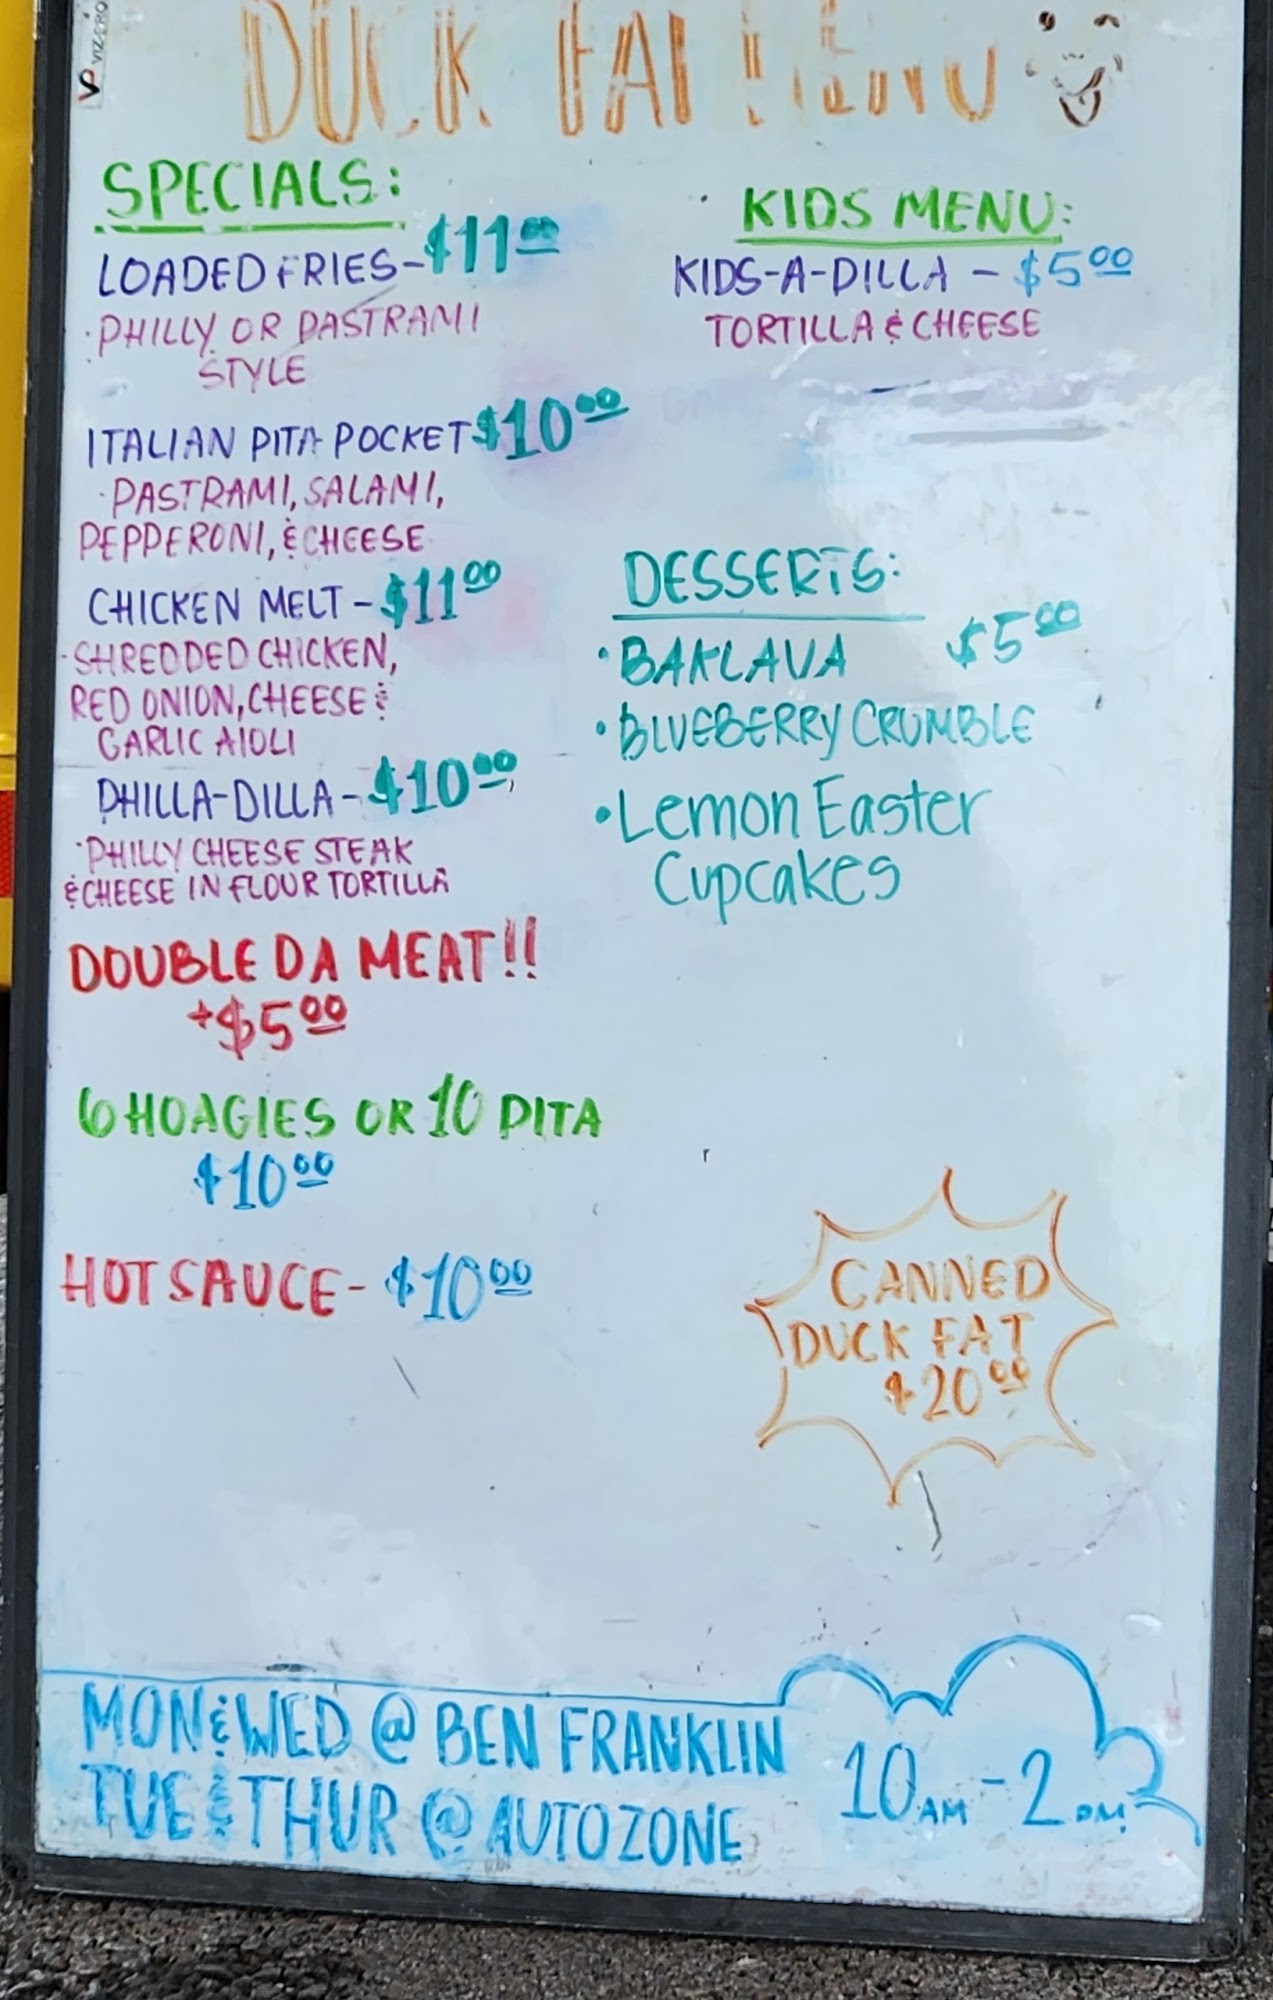 DUCK FAT MENU
SPECIALS:
LOADED FRIES - $11.00
· PHILLY OR PASTRAMI
STYLE
ITALIAN PITA POCKET $10.00
· PASTRAMI, SALAMI,
PEPPERONI, & CHEESE
CHICKEN MELT - $11.00
· SHREDDED CHICKEN,
RED ONION, CHEESE &
GARLIC AIOLI
PHILLA-DILLA - $10.00
· PHILLY CHEESE STEAK
& CHEESE IN FLOUR TORTILLA
DOUBLE DA MEAT!!
+$5.00
6 HOAGIES OR 10 PITA
$10.00
HOT SAUCE - $10.00
KIDS MENU:
KIDS-A-DILLA - $5.00
TORTILLA & CHEESE
DESSERTS:
· BAKLAVA $5.00
· BLUEBERRY CRUMBLE
· Lemon Easter
Cupcakes
CANNED
DUCK FAT
$20.00
MON & WED @ BEN FRANKLIN
TUE & THUR @ AUTOZONE
10 AM - 2 PM